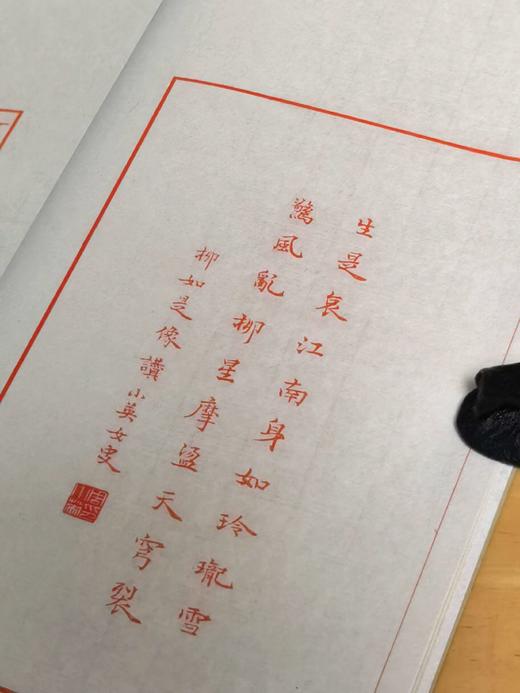 生是哀江南身如玲瓏雪
驚風亂柳星摩盪天穹裂
柳如是像讚 小英女史